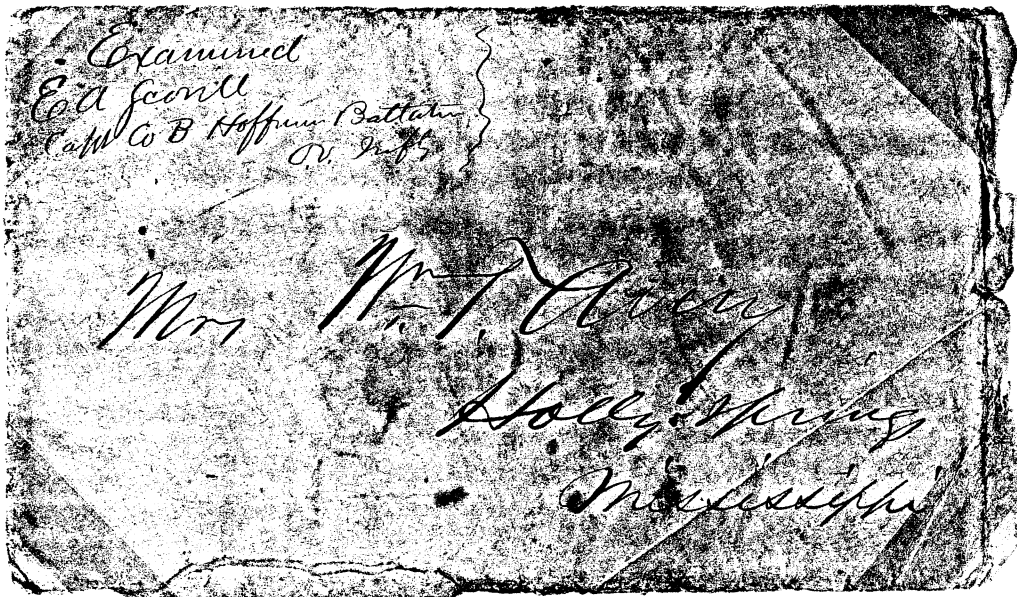 Examined
E A Scovill
Capt Co B Hoffman Battalion
O. V. Infy
Mrs Wm T. Avery
Holly Springs
Mississippi